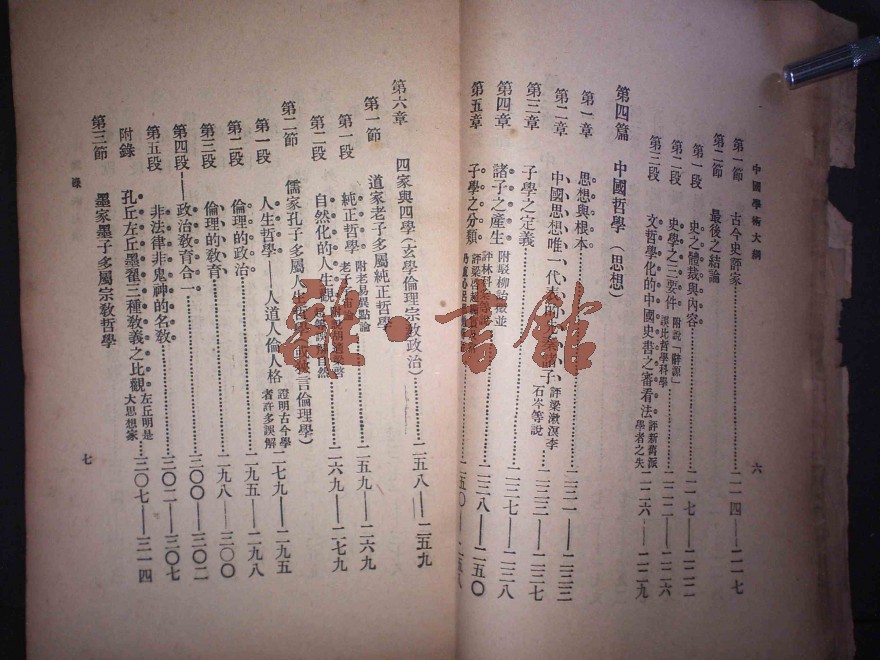 中國學術大綱
六
第一節 古今史評家……二一四——二一七
第二節 最後之結論
第一段 史之體裁與內容……二一七——二二二
第二段 史學之三要件 附說「辭源」誤比哲學科學……二二二——二二六
第三段 文哲學化的中國史書之審看法 評新舊派學者之失 二二六——二二九
第四篇 中國哲學(思想)
第一章 思想與根本……二三一——二三三
第二章 中國思想唯一代表的 諸子 評梁漱溟李石岑等說 二三三——二三七
第三章 子學之定義……二三七——二三八
第四章 諸子之產生 附駁柳詒徵並評林科棠等說……二三八——二五〇
第五章 子學之分類 評梁啓超……二五〇——二五八
第六章 四家與四學(玄學倫理宗教政治)……二五八——二五九
第一節 道家老子多屬純正哲學
第一段 純正哲學 附老易異點論……二五九——二六九
第二段 自然化的人生觀……二六九——二七九
第二節 儒家孔子多屬人生哲學(或狹言倫理學)
第一段 人生哲學——人道人倫人格 證明古今學者許多誤解 二七九——二九五
第二段 倫理的政治……二九五——二九八
第三段 倫理的教育……二九八——三〇〇
第四段——政治教育合一……三〇〇——三〇二
第五段 非法律非鬼神的名教……三〇二——三〇七
附錄 孔丘左丘墨翟三種教義之比觀 左丘明是大思想家 三〇七——三一四
第三節 墨家墨子多屬宗教哲學
錄
七
雜·書館